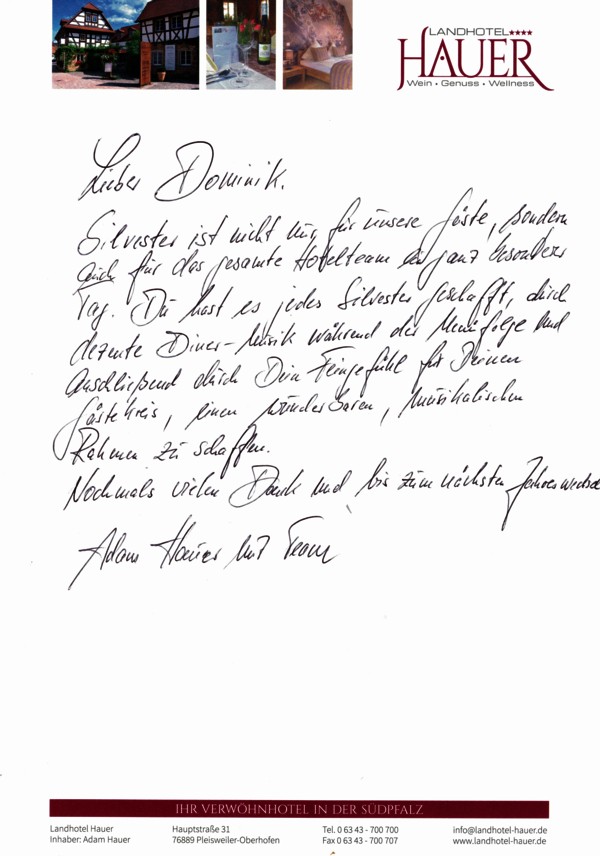 LANDHOTEL****
HAUER
Wein · Genuss · Wellness
Lieber Dominik.
Silvester ist nicht nur für unsere Gäste, sondern
auch für das gesamte Hotelteam ein ganz besonderer
Tag. Du hast es jedes Silvester geschafft, durch
dezente Diner-Musik während der Menüfolge und
anschließend durch Dein Feingefühl für Deinen
Gästekreis, einen wunderbaren, musikalischen
Rahmen zu schaffen.
Nochmals vielen Dank und bis zum nächsten Jahreswechsel
Adam Hauer mit Team
IHR VERWÖHNHOTEL IN DER SÜDPFALZ
Landhotel Hauer Hauptstraße 31 Tel. 0 63 43 - 700 700 info@landhotel-hauer.de
Inhaber: Adam Hauer 76889 Pleisweiler-Oberhofen Fax 0 63 43 - 700 707 www.landhotel-hauer.de